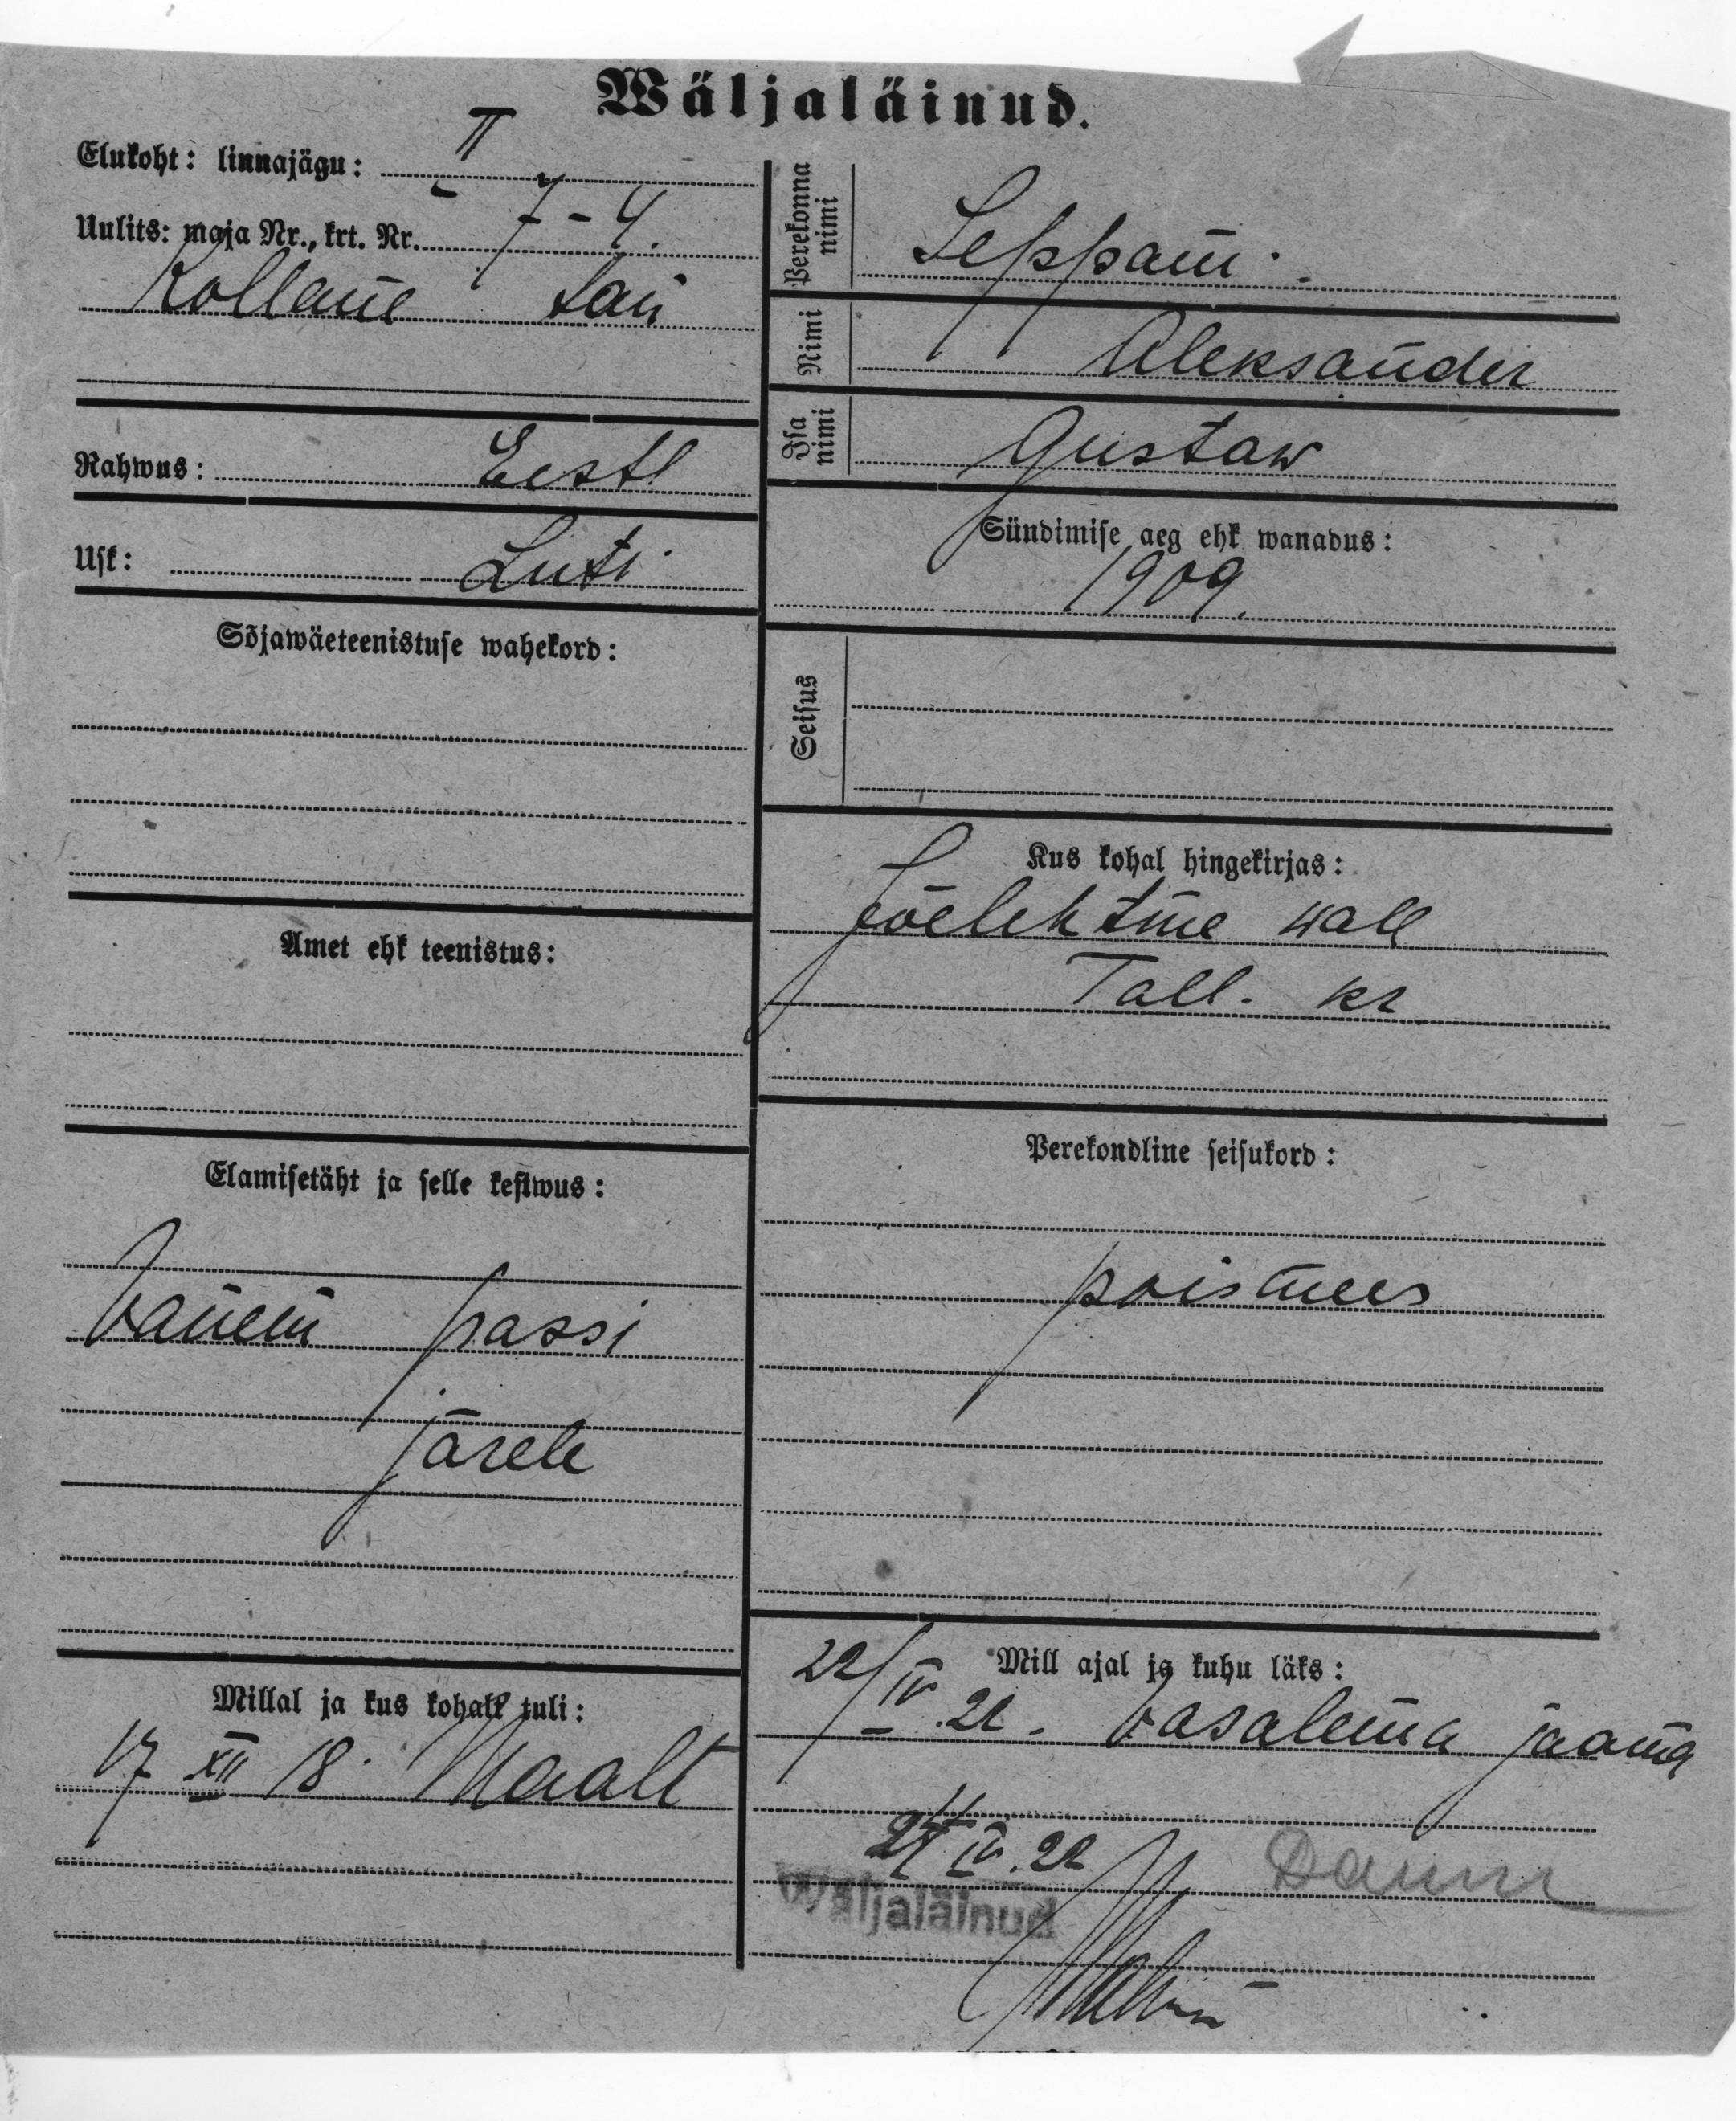 Wäljaläinud.
Elukoht: linnajägu: II
Uulits: maja Nr., krt. Nr. 7-4.
Kollane tän
Rahwus: Eestl
Usk: Luti
Sõjawäeteenistuse wahekord:
Amet ehk teenistus:
Elamisetäht ja selle kestwus:
Vanem passi
järele
Millal ja kus kohalt tuli:
17 XII 18. Maalt
Perekonna nimi
Nimi Aleksander
Isa nimi Gustaw
Sündimise aeg ehk wanadus:
1909.
Seisus
Kus kohal hingekirjas:
Jõelehtme wall
Tall. kr
Perekondline seisukord:
poismees
Mill ajal ja kuhu läks:
22/IV 22. Vasalema jaama
IV. 22
Wäljaläinud